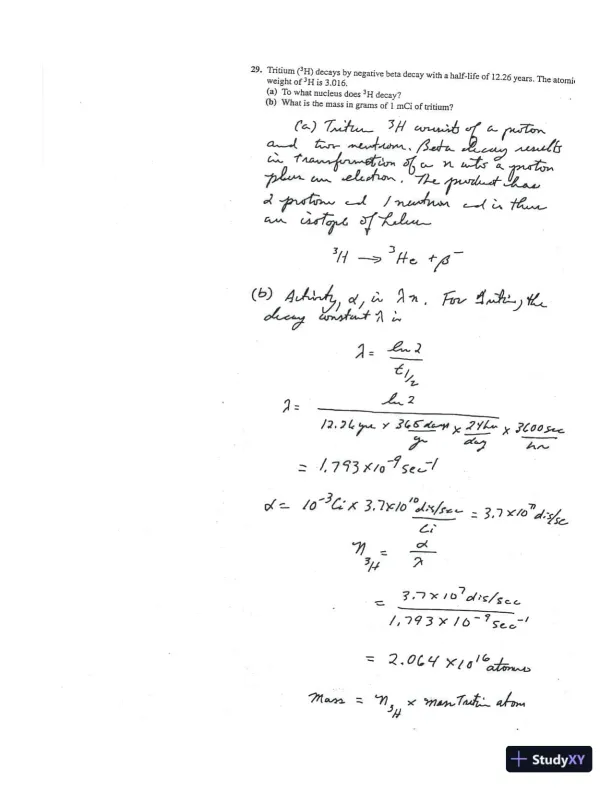 29. Tritium (³H) decays by negative beta decay with a half-life of 12.26 years. The atomi
weight of ³H is 3.016.
(a) To what nucleus does ³H decay?
(b) What is the mass in grams of 1 mCi of tritium?
(a) ³H consists of a proton
and two neutrons. Beta decay results
in transformation of a n into a proton
plus an electron. The product has
2 protons and 1 neutron and is thus
an isotope of helium
³H → ³He + β⁻
(b) Activity, α, is λn. For Tritium, the
decay constant λ is
λ = ln 2 / t1/2
λ = ln 2 / 12.26 yrs × 365 days/yr × 24 hr/day × 3600 sec/hr
= 1.793×10⁻⁹ sec⁻¹
α = 10⁻³ Ci × 3.7×10¹⁰ dis/sec / Ci = 3.7×10⁷ dis/se
n ³H = α / λ
= 3.7×10⁷ dis/sec / 1.793×10⁻⁹ sec⁻¹
= 2.064×10¹⁶ atoms
Mass = n ³H × mass Tritium atom
StudyXY